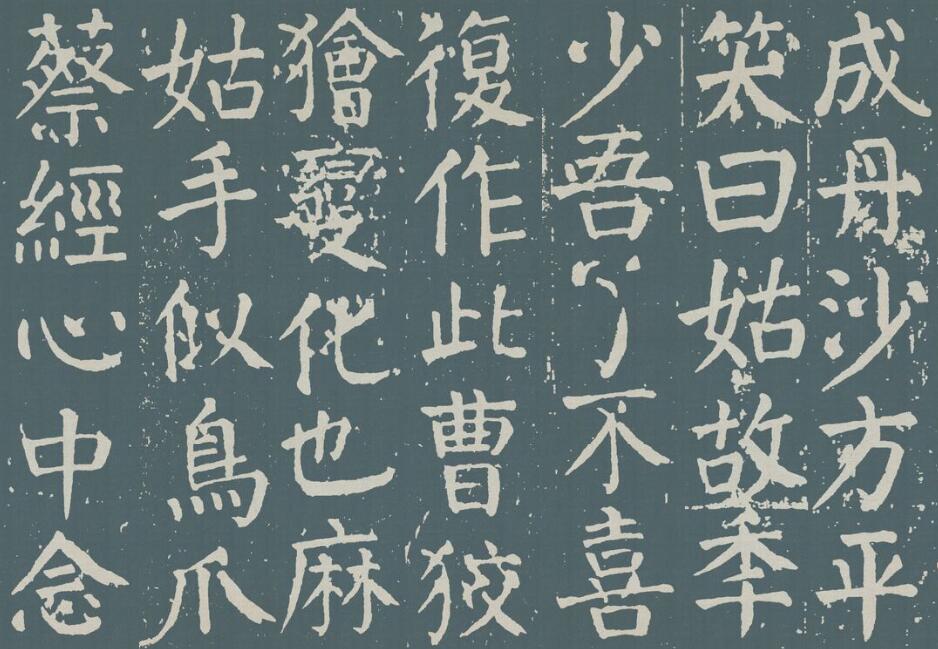 成丹沙方平
笑曰姑故秊
少吾了不喜
復作此曹狡
獪變化也麻
姑手似鳥爪
蔡經心中念